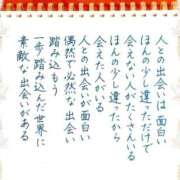 人との出会いは面白い
ほんの少し違っただけで
会えない人がたくさんいる
ほんの少し違ったから
会えた人がいる
人との出会いが面白い
偶然で必然な出会い
踏み込もう
一歩踏み込んだ世界に
素敵な出会いがある